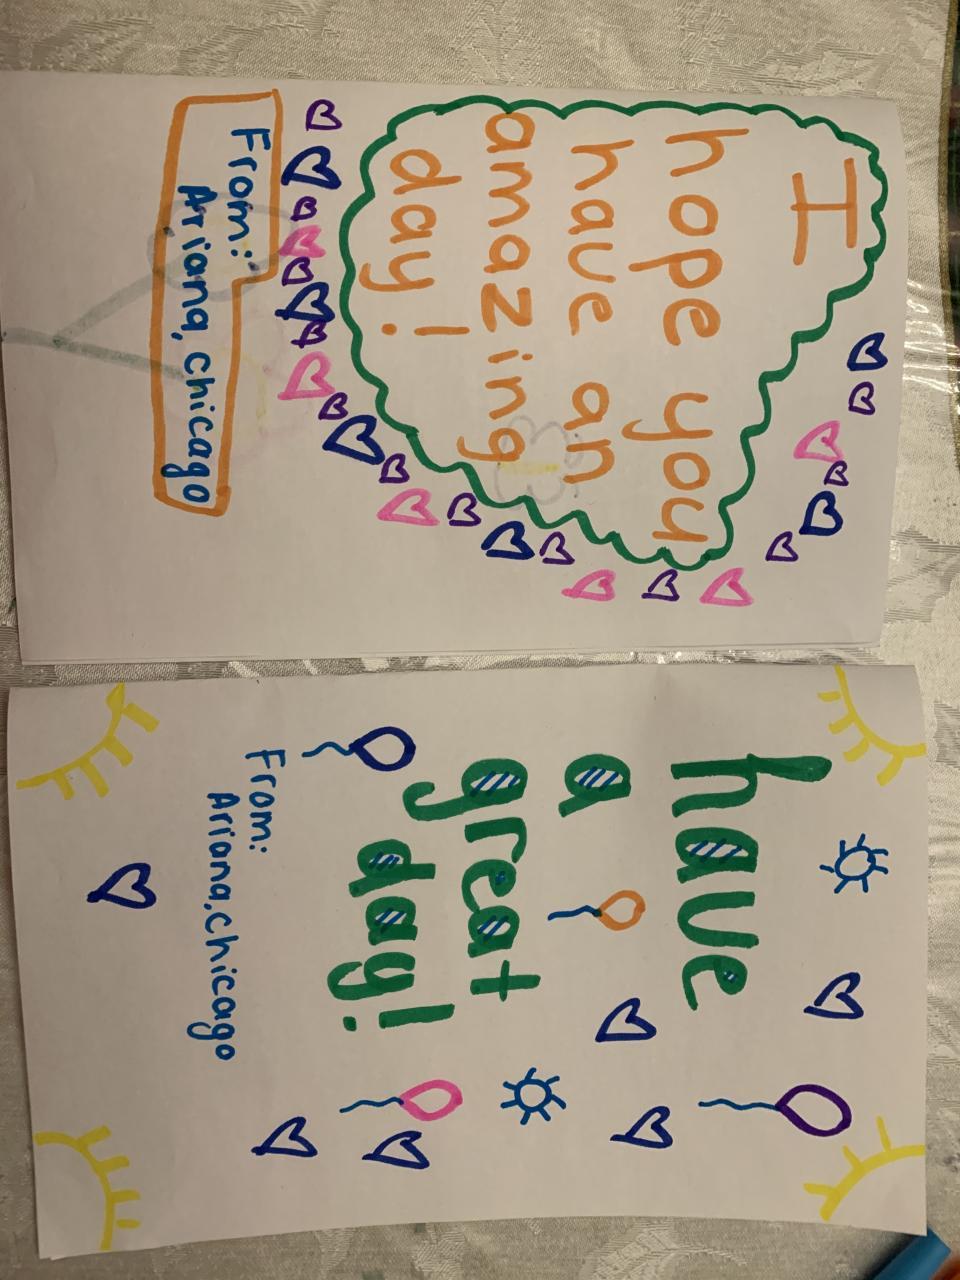 I
hope you
have an
amazing
day!
From:
Ariana, chicago
have
a
great
day!
From:
Ariana, chicago